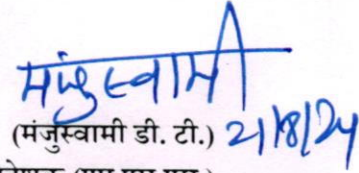 मंजुस्वामी
(मंजुस्वामी डी. टी.) 21/8/24